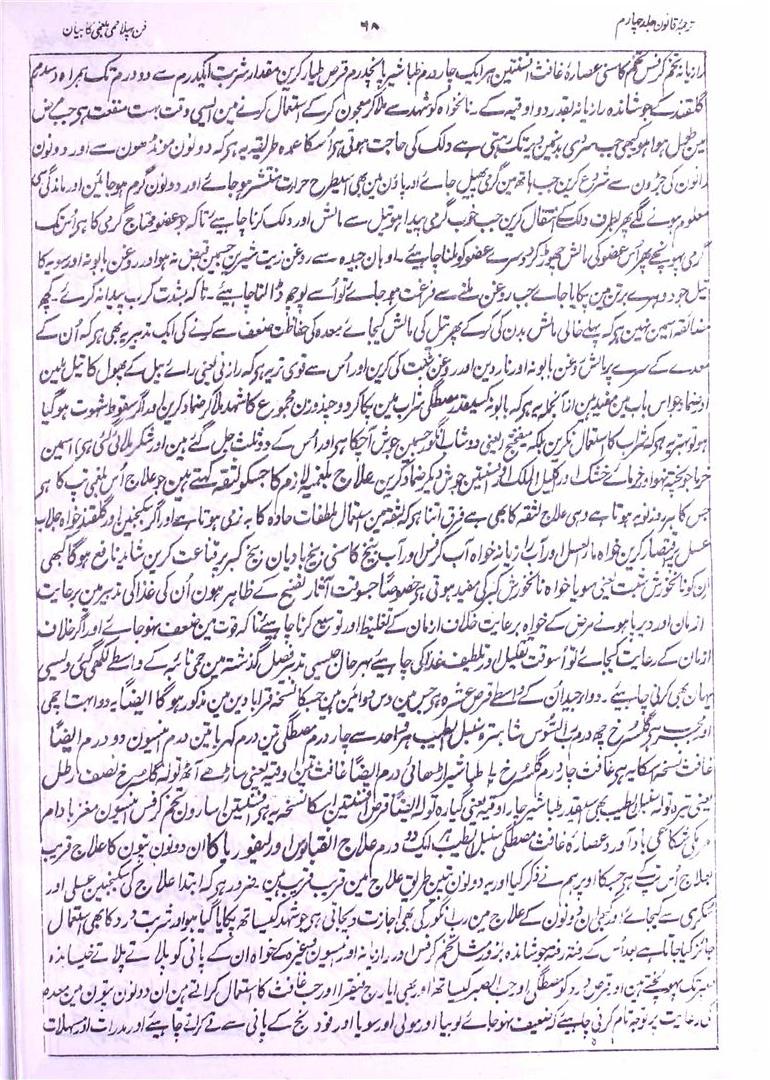 ترجمۂ قانون جلد چہارم ۶۸ فن پہلا حمی بلغمی کا بیان
رازیانہ تخم کرفس تخم کاسنی عصارۂ غافث افسنتین ہر ایک چار درم طباشیر پانچدرم قرص طیار کرین مقدار شربت ایکدرم سے دو درم تک ہمراہ
گلقند کے جوشاندہ رازیانہ بقدر دو اوقیہ کے۔ نانخواہ کو شہد سے ملا کر معجون کر کے استعمال کرنے مین ایسی وقت بہت منفعت ہی جب مرض
مین طول ہوا ہو کبھی جب سردی بدنمین دیر تک رہتی ہے دلک کی حاجت ہوتی ہی اسکا عمدہ طریقہ یہ ہی کہ دونون مونڈھون سے اور دونون
رانون کی جڑون سے شروع کرین جب ہاتھ مین گرمی پھیل جائے اور پاؤن مین بھی اسیطرح حرارت منتشر ہو جائے اور دونون گرم ہو جائین اور ماندگی سی
معلوم ہونے لگے پھر بطرف دلک کے انتقال کرین جب خوب گرمی پیدا ہو تیل سے مالش اور دلک کرنا چاہیے تاکہ جو عضو محتاج گرمی کا ہی اُس تک
گرمی پہونچے پھر اُس عضو کی مالش چھوڑ کر دوسرے عضو کو ملنا چاہیے۔ ادہان جیدہ سے روغن زیت شیرین جسمین قبض نہ ہو اور روغن بابونہ اور سویہ کا
تیل جو دوہرے برتن مین پکایا جائے جب روغن ملنے سے فراغت ہو جائے تو اُسے پوچھ ڈالنا چاہیے۔ تاکہ بشدت کرب پیدا نہ کرے۔ کچھ
مضائقہ اسمین نہین ہی کہ پہلے خالی مالش بدن کی کر کے پھر تیل کی مالش کیجائے معدہ کی حفاظت ضعف سے کرنے کی ایک تدبیر یہ بھی ہی کہ اُن کے
معدے کے سرے پر مالش روغن بابونہ اور ناردین اور روغن شبت کی کرین اور اُس سے قوی تر یہ ہی کہ رازقی یعنی رائے بیل کے پھول کا تیل ملین
اور ضماد جو اس باب مین مفید ہین ازانجملہ یہ ہی کہ بابونہ کسیقدر مصطگی شراب مین پکا کر دو چند وزن مجموع کا شہد ملا کر ضماد کرین اور اگر سقوط شہوت ہو گیا
ہو تو بہتر یہ ہی کہ شراب کا استعمال نکرین بلکہ میفختج یعنی دوشاب انگور جسمین جوش آچکا ہی اور اُس کے دو ثلث جل گئے ہین اور شکر ملائی گئی ہی اسمین
خرما پختہ ہو اور خرمائے خشک اور اکلیل الملک اور افسنتین جوش دیکر ضماد کرین علاج بلغمیہ لازم کا جسکو لثقہ کہتے ہین جو علاج اُس بلغمی تپ کا ہی
جس کا ہر روز نوبہ ہوتا ہے وہی علاج لثقہ کا بھی ہے فرق اتنا ہی کہ لثقہ مین استعمال ملطفات حادہ کا بہ نرمی ہوتا ہے اور اگر سکنجبین اور گلقند خواہ جلاب
عسل پر اقتصار کرین خواہ ماء العسل اور آب رازیانہ خواہ آب کرفس اور آب بیخ کاسنی و بیخ بادیان و بیخ کبر پر قناعت کرین شاید نافع ہوگا کبھی
ان کو نانخورش شبت یعنی سویا خواہ نانخورش کبر کی مفید ہوتی ہی خصوصاً جسوقت آثار نضج کے ظاہر ہون اُن کی غذا کی تدبیر مین برعایت
ازمان اور دیرپا ہونے مرض کے خواہ برعایت خلاف ازمان کے تغلیظ اور توسیع کرنا چاہیے تاکہ قوت مین ضعف نہو جائے اور اگر خلاف
ازمان کے رعایت کیجائے تو اُسوقت تقلیل اور تلطیف غذا کی چاہیے بہر حال جیسی تدبیر فصل گذشتہ مین حمی نائبہ کے واسطے لکھی گئی ویسی
یہان بھی کرنی چاہیے۔ دوا جید ان کے واسطے قرص عشرہ ہی جسمین دس دوائین ہین جسکا نسخہ قرابادین مین مذکور ہو گا ایضاً یہ دوا بہت اچھی
اور مجرب ہی گلسرخ چھ درم رب السوس شاہترہ سنبل الطیب ہر واحد سے چار درم مصطگی تین درم کہربا تین درم انیسون دو درم ایضاً
غافث نسخہ اسکا یہ ہی غافث چار درم گلسرخ طباشیر اڑھائی درم ایضاً غافث تین اوقیہ یعنی ساڑھے آٹھ تولہ گلسرخ نصف رطل
یعنی تیرہ تولہ سنبل الطیب بھی اسیقدر طباشیر چار اوقیہ یعنی گیارہ تولہ ایضاً قرص افسنتین اسکا نسخہ یہ ہی افسنتین اسارون تخم کرفس انیسون مغز بادام
عصارۂ غافث مصطگی سنبل الطیب ہر ایک دو درم علاج انقیاؤس اور لیفوریا کا ان دونون تپون کا علاج قریب
بعلاج اُس تپ کے ہی جسکا اوپر ہم نے ذکر کیا اور یہ دونون تپین طریق علاج مین قریب قریب ہین۔ ضرور ہی کہ ابتدا علاج کی سکنجبین عسلی اور
شکری سے کیجائے اور کبھی ان دونون کے علاج مین رب انگور کی بھی اجازت دیجاتی ہی جو شہد کیساتھ پکایا گیا ہو اور شربت ورد کا بھی استعمال
جائز کیا جاتا ہے بعد اُس کے رفتہ رفتہ جوشاندہ بزور مثل تخم کرفس اور رازیانہ اور انیسون وغیرہ کے خواہ ان کے پانی کو پلاتے پلاتے خیساندہ
صبر تک پہونچتے ہین اور قرص ورد کو مصطگی اور حب الصبر کیساتھ اور یہی ایارج فیقرا اور حب غافث کا استعمال کراتے ہین ان دونون تپون مین معدہ
کی رعایت پر توجہ تام کرنی چاہیے کہ ضعیف نہو جائے لوبیا اور مولی اور سویا اور فودنج کے پانی سے قے کرانے چاہیے اور مدرات اور مسہلات